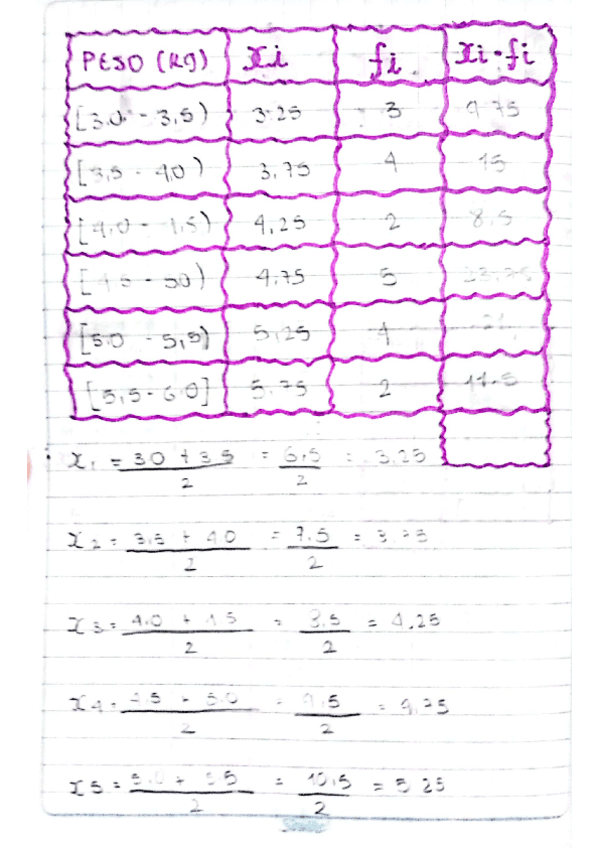 PESO (Kg) xi fi xi·fi
[3.0 - 3,5) 3.25 3 9.75
[3,5 - 4,0) 3,75 4 15
[4,0 - 4,5) 4,25 2 8.5
[4.5 - 5.0) 4.75 5 23.75
[5.0 - 5,5) 5,25 4 21
[5,5 - 6.0] 5.75 2 11.5
x1 = 3.0 + 3.5 / 2 = 6,5 / 2 = 3.25
x2 = 3,5 + 4.0 / 2 = 7.5 / 2 = 3.75
x3 = 4.0 + 4.5 / 2 = 8.5 / 2 = 4.25
x4 = 4.5 + 5.0 / 2 = 9.5 / 2 = 4.75
x5 = 5.0 + 5.5 / 2 = 10.5 / 2 = 5.25